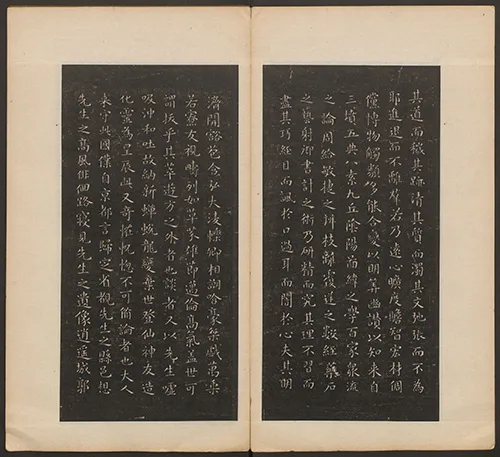 其道而穢其跡清其質而濁其文弛張而不為
耶進退而不離羣若乃遠心曠度贍智宏材倜
儻博物觸類多能合變以明筭幽讚以知來自
三墳五典八索九丘陰陽圖緯之學百家衆流
之論周給敏捷之辨枝離覆逆之數經脉藥石
之藝射御書計之術乃研精而究其理不習而
盡其巧經目而諷於口過耳而闇於心夫其明
濟開豁苞含弘大淩轢卿相謿哈豪桀戲萬乘
若寮友視疇列如草芥雄節邁倫高氣蓋世可
謂拔乎其萃遊方之外者也談者又以先生噓
吸沖和吐故納新蟬蛻龍變棄世登仙神友造
化靈為星辰此又奇怪怳惚不可備論者也大人
來守此國僕自京都言歸定省覩先生之縣邑想
先生之高風徘徊路寢見先生之遺像逍遙城郭